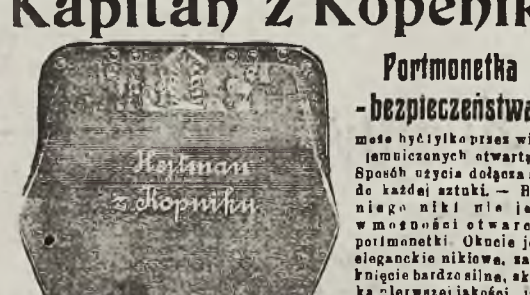 Kapitan z Kopenik
Hejtman
z Kopniku
Portmonetka
- bezpieczeństwa
może być tylko przez wt
jemniczonych otwart
Sposób użycia dołącza
do każdej sztuki. —
niego nikt nie je
w możności otwarc
portmonetki. Okucie je
eleganckie niklowe, za
knięcie bardzo silne, sk
ka pierwszej jakości